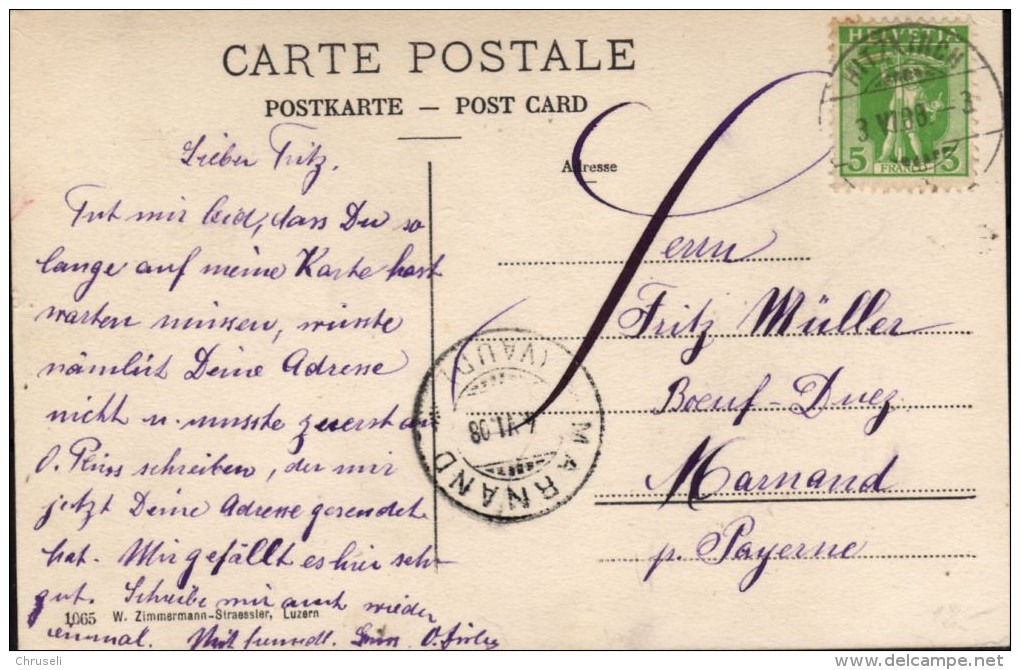 CARTE POSTALE
POSTKARTE — POST CARD
Adresse
HELVETIA
5 FRANCO 5
HITZKIRCH
3 VI 08. – 3
Lieber Fritz.
Tut mir leid, dass Du so
lange auf meine Karte hast
warten müssen, wusste
nämlich Deine Adresse
nicht u. musste zuerst an
O. schreiben, der mir
jetzt Deine Adresse gesendet
hat. Mir gefällt es hier sehr
gut. Schreibe mir auch wieder
einmal. Mit freundl. Gruss O.
Herrn
Fritz Müller
Boeuf-Duez
Marnand
p. Payerne
MARNAND (VAUD)
4 VI 08
1065 W. Zimmermann-Straessler, Luzern
Chruseli
http://www.delcampe.net